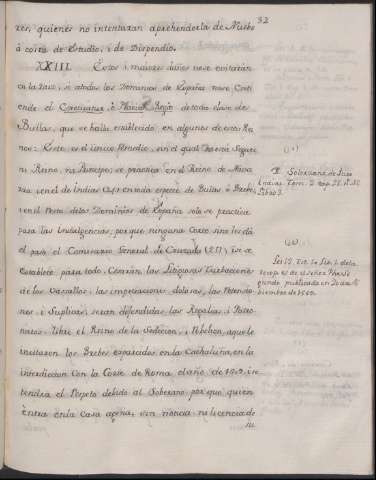 32
ren, quienes no intentaran aprehenderla de Nuebo
à costa de Estudio, i de Dispendio.
XXIII. Estos i maiores daños no se evitaràn
en la Praxi, si à todos los Dominios de España no se Esti
ende el Exequatur, ò Placito Regio de toda clase de
Bullas, que se halla establecido en algunos de estos Rei
nos: Este es el unico Remedio, sin el qual no està Seguro
ni Reino, ni Principe, se practica en el Reino de Nava
rra, i en el de Indias en toda especie de Bullas ò Brebes,
i en el Resto de los Dominios de España solo se practica
para las Indulgencias, por que ninguna Corre sin les dà
el paso el Comisario General de Cruzada, Si se
Establece para todo, Cesaràn las Litigiosas Turbaciones
de los Vasallos, las impetraciones dolosas, las Retencio
nes i Suplicas, seràn defendidas las Regalias, i Patro
natos, libre el Reino de la Sedicion, i Rebelion, aque le
incitaron los Brebes esparcidos en la Cathaluña, en la
interdiccion con la Corte de Roma el año de 1709, i se
tendrà el Respeto debido al Soberano, por que quien
entra en la Casa agena, sin noticia, ni licencia de
su
Solorzano de Jure
Indiar. Tom. 2
Lib. 3.
Lei 12. Tit. 10 Lib. 1 de la
Recop. es de el señor Phe. Se
gundo publicada en 20 de No
biembre de 1569.